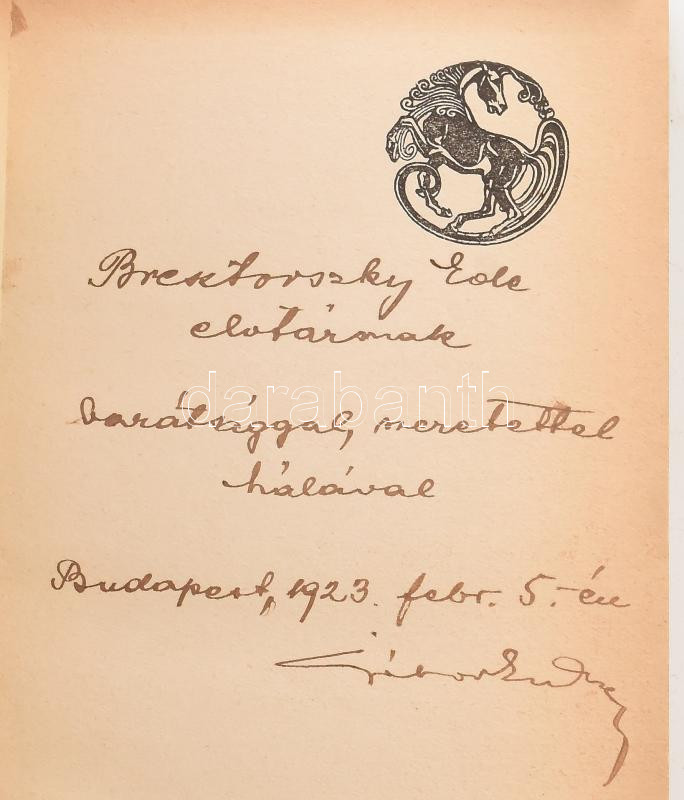 Bresztovszky Ede
elvtársnak
darabanth
barátsággal, szeretettel
hálával
Budapest, 1923. febr. 5.-én
Gábor Andor